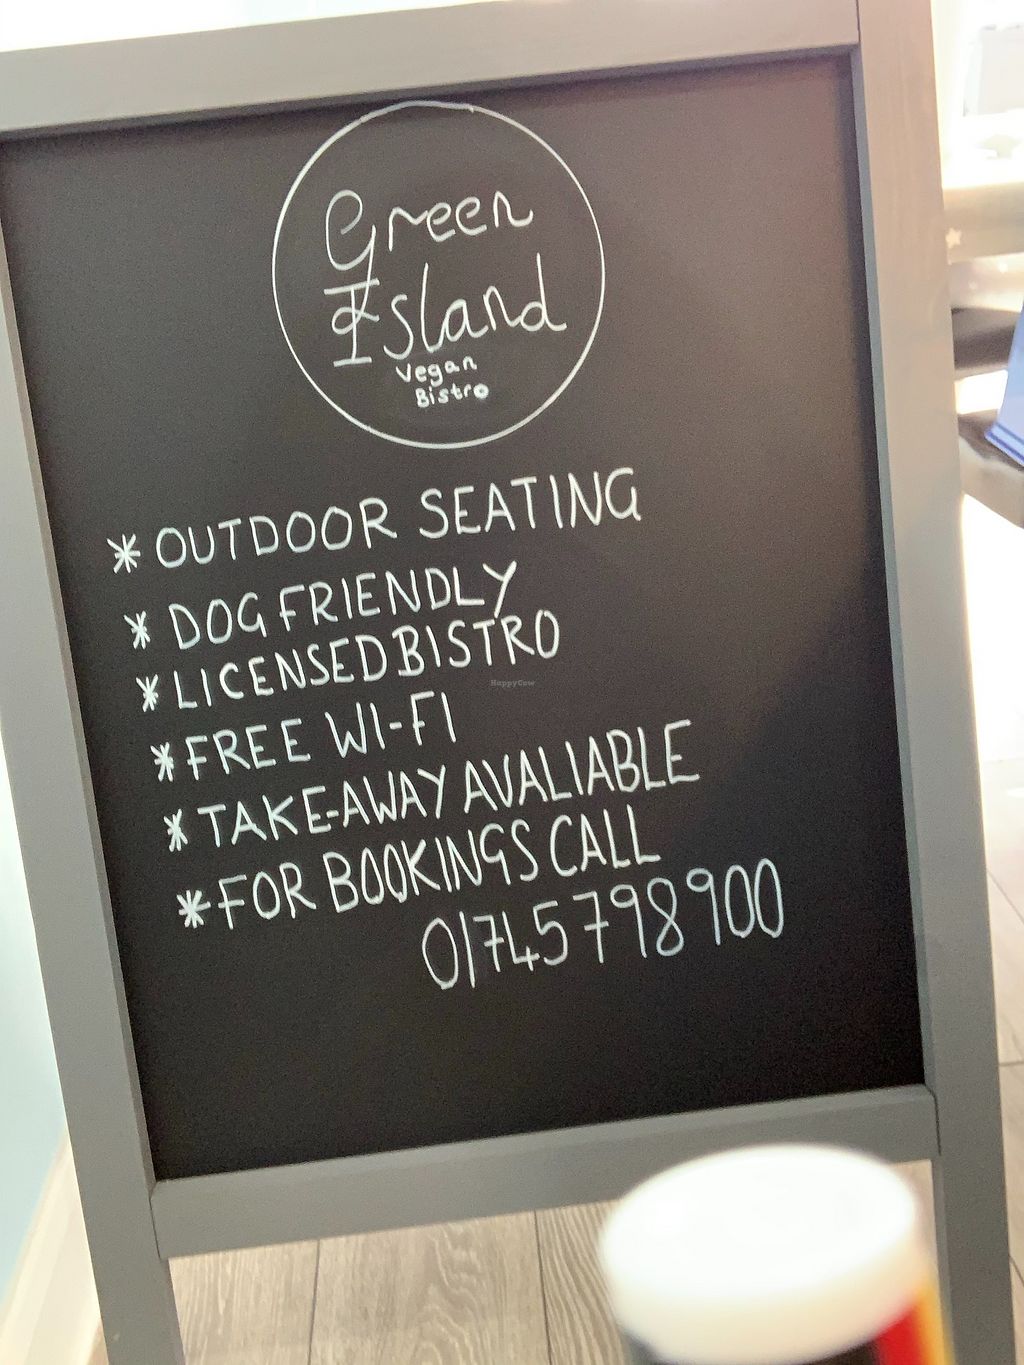 Green
Island
Vegan
Bistro
* OUTDOOR SEATING
* DOG FRIENDLY
* LICENSED BISTRO
HappyCow
* FREE WI-FI
* TAKE-AWAY AVALIABLE
* FOR BOOKINGS CALL
01745 798900